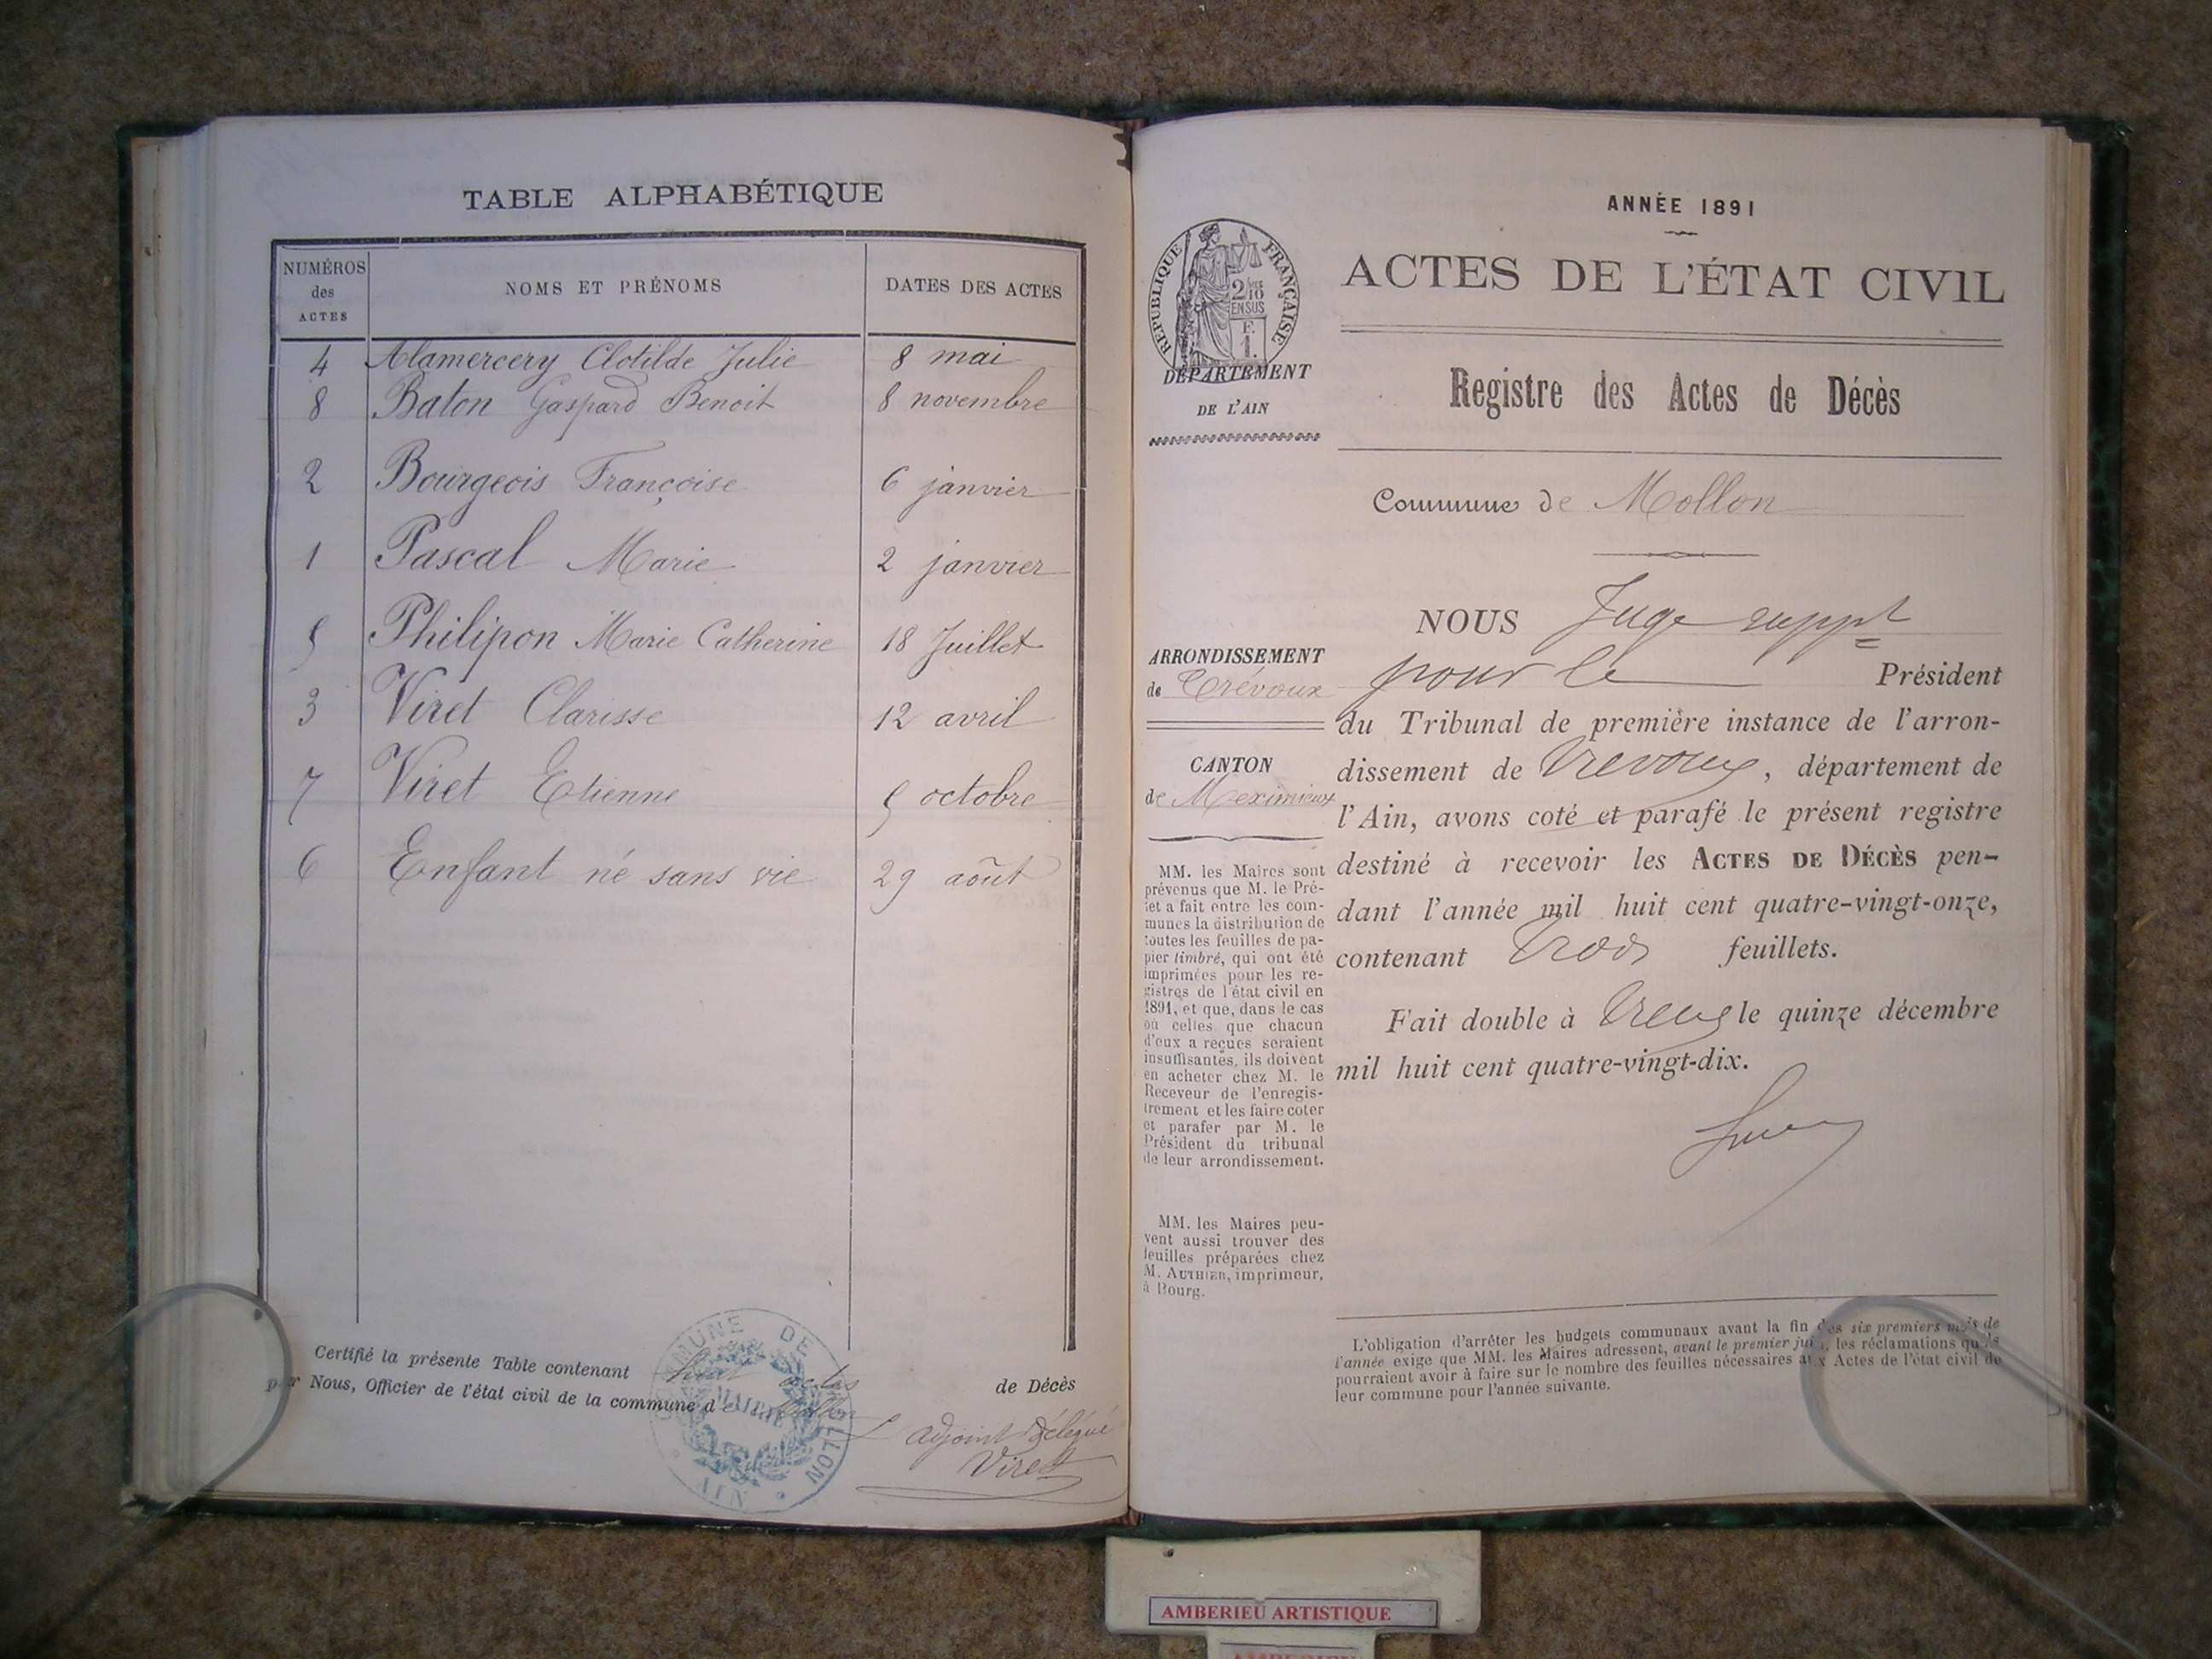 TABLE ALPHABÉTIQUE
NUMÉROS des ACTES NOMS ET PRÉNOMS DATES DES ACTES
4 Alamercery Clotilde Julie 8 mai
8 Baton Gaspard Benoit 8 novembre
2 Bourgeois Françoise 6 janvier
1 Pascal Marie 2 janvier
5 Philipon Marie Catherine 18 Juillet
3 Viret Clarisse 12 avril
7 Viret Etienne 5 octobre
6 Enfant né sans vie 29 août
Certifié la présente Table contenant huit actes de Décès
par Nous, Officier de l'état civil de la commune de Mollon
COMMUNE DE MOLLON
MAIRIE
AIN
L'adjoint Délégué
Viret
ANNÉE 1891
ACTES DE L'ÉTAT CIVIL
RÉPUBLIQUE FRANÇAISE
2/10
EN SUS
F.
1.
DÉPARTEMENT
DE L'AIN
Registre des Actes de Décès
Commune de Mollon
NOUS Juge suppt
ARRONDISSEMENT
de Trévoux
pour le Président
du Tribunal de première instance de l'arron-
dissement de Trévoux, département de
l'Ain, avons coté et parafé le présent registre
destiné à recevoir les ACTES DE DÉCÈS pen-
dant l'année mil huit cent quatre-vingt-onze,
contenant Trois feuillets.
Fait double à le quinze décembre
mil huit cent quatre-vingt-dix.
CANTON
de Meximieux
MM. les Maires sont
prévenus que M. le Pré-
fet a fait entre les com-
munes la distribution de
toutes les feuilles de pa-
pier timbré, qui ont été
imprimées pour les re-
gistres de l'état civil en
1891, et que, dans le cas
où celles que chacun
d'eux a reçues seraient
insuffisantes, ils doivent
en acheter chez M. le
Receveur de l'enregis-
trement et les faire coter
et parafer par M. le
Président du tribunal
de leur arrondissement.
MM. les Maires peu-
vent aussi trouver des
feuilles préparées chez
M. AUTHIER, imprimeur,
à Bourg.
L'obligation d'arrêter les budgets communaux avant la fin des six premiers mois de
l'année exige que MM. les Maires adressent, avant le premier juin, les réclamations qu'ils
pourraient avoir à faire sur le nombre des feuilles nécessaires aux Actes de l'état civil de
leur commune pour l'année suivante.
AMBERIEU ARTISTIQUE
AMBERIEU